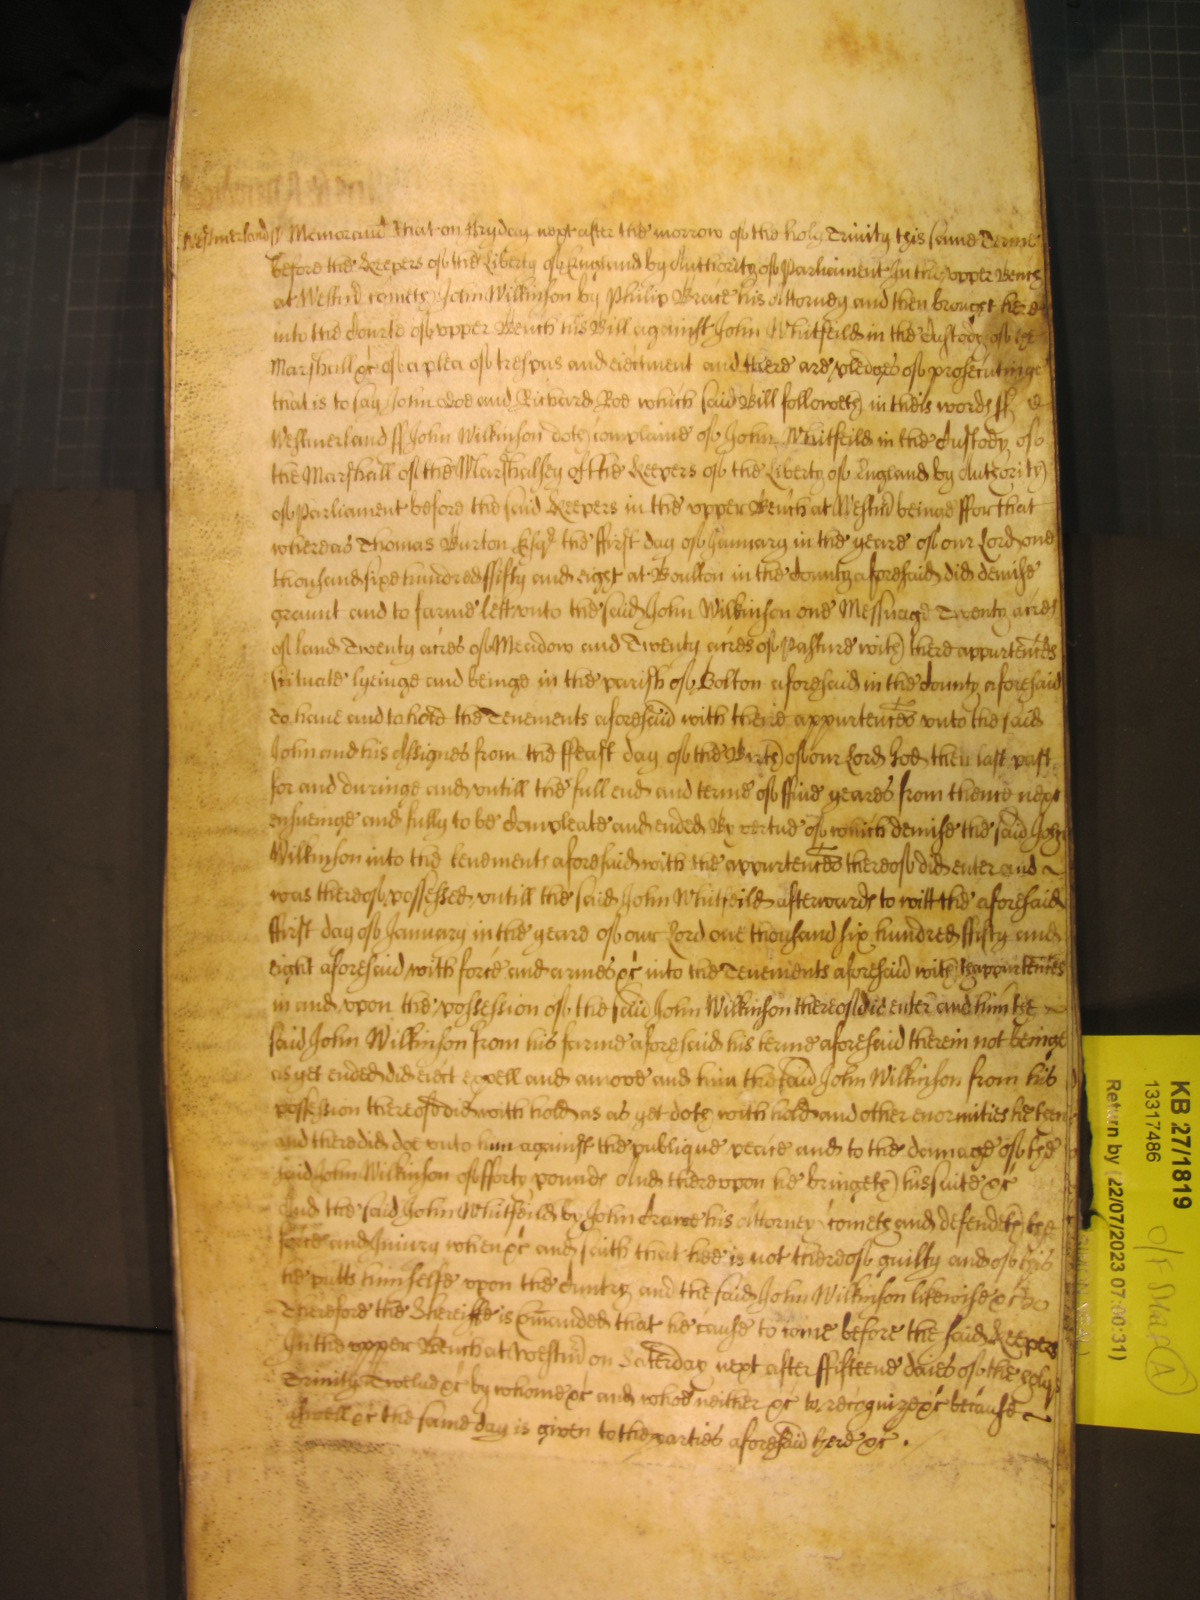 Westmerland ss Memorand That on Fryday next after the morrow of the holy Trinity this same Terme
before the Keepers of the Liberty of England by Authority of Parliament In the vpper Bench
at Westm̄ cometh John Wilkinson by Philip Brace his Attorney and then brought here
into the Courte of vpper Bench his Bill against John Whitfeild in the Custody of the
Marshall &c of a plea of trespas and eiectment and there are pledges of prosecutinge
that is to say John Doe and Richard Roe which said Bill followeth in theis words ss
Westmerland ss John Wilkinson doth complaine of John Whitfeild in the Custody of
the Marshall of the Marshalsey of the Keepers of the Liberty of England by Authority
of Parliament before the said Keepers in the vpper Bench at Westm̄ beinge ffor that
whereas Thomas Burton Esqr the ffirst day of January in the yeare of our Lord one
thousand sixe hundred ffifty and eight at Boulton in the County aforesaid did demise
graunt and to farme lett vnto the said John Wilkinson one Messuage Twenty acres
of land Twenty acres of Meadow and Twenty acres of Pasture with there appurtences
scituate lyeinge and beinge in the parish of Bolton aforesaid in the County aforesaid
To haue and to hold the Tenements aforesaid with theire appurtences vnto the said
John and his Assignes from the ffeast day of the Birth of our Lord God then last past
for and duringe and vntill the full end and terme of ffiue yeares from thence next
ensueinge and fully to be Compleate and ended By vertue of which demise the said John
Wilkinson into the tenements aforesaid with the appurtences thereof did enter and
was thereof possessed vntill the said John Whitfeild afterwards to witt the aforesaid
ffirst day of January in the yeare of our Lord one thousand six hundred ffifty and
eight aforesaid with force and armes &c into the Tenements aforesaid with thappurtences
in and vpon the possession of the said John Wilkinson thereof did enter and him the
said John Wilkinson from his farme aforesaid his terme aforesaid therein not beinge
as yet ended did eiect expell and amove and him the said John Wilkinson from his
possession thereof did with hold as as yet doth with hold and other enormities he then
and there did doe vnto him against the publique peace and to the damage of the
said John Wilkinson of fforty pounds And therevpon he bringeth his suite &c
And the said John Whitfeild by John his Attorney cometh and defendeth the
force and Iniury when &c and saith that hee is not thereof guilty and of this
he putts himselfe vpon the Cuntry and the said John Wilkinson likewise &c
Therefore the Sheriffe is com̄anded that he cause to come before the said Keepers
In the vpper Bench at Westm̄ on Saterday next after ffifteene daies of the holy
Trinity Twelve &c by whome &c and whoe neither &c to recognize &c because
aswell &c the same day is given to the parties aforesaid there &c.
KB 27/1819
13317486
Return by (22/07/2023 07:00:31)